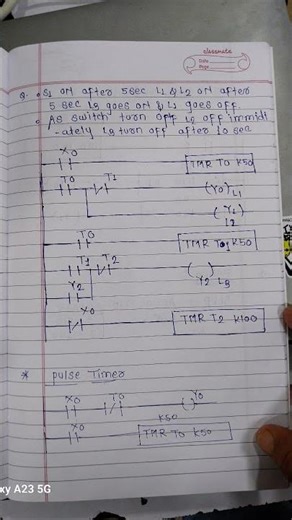 classmate
Date
Page
Q. • S1 on after 5sec L1 & L2 on after
5 sec L3 goes on & L1 goes off.
• As switch turn off L2 off immidi
-ately L3 turn off after 10 sec
X0
TMR T0 K50
T0 T1
(Y0) L1
(Y1)
L2
T0
TMR T1 K50
T1 T2
( )
Y2 L3
Y2
X0
TMR T2 K100
* Pulse Timer
X0 T0 ( ) Y0
K50
X0
TMR T0 K50
xy A23 5G